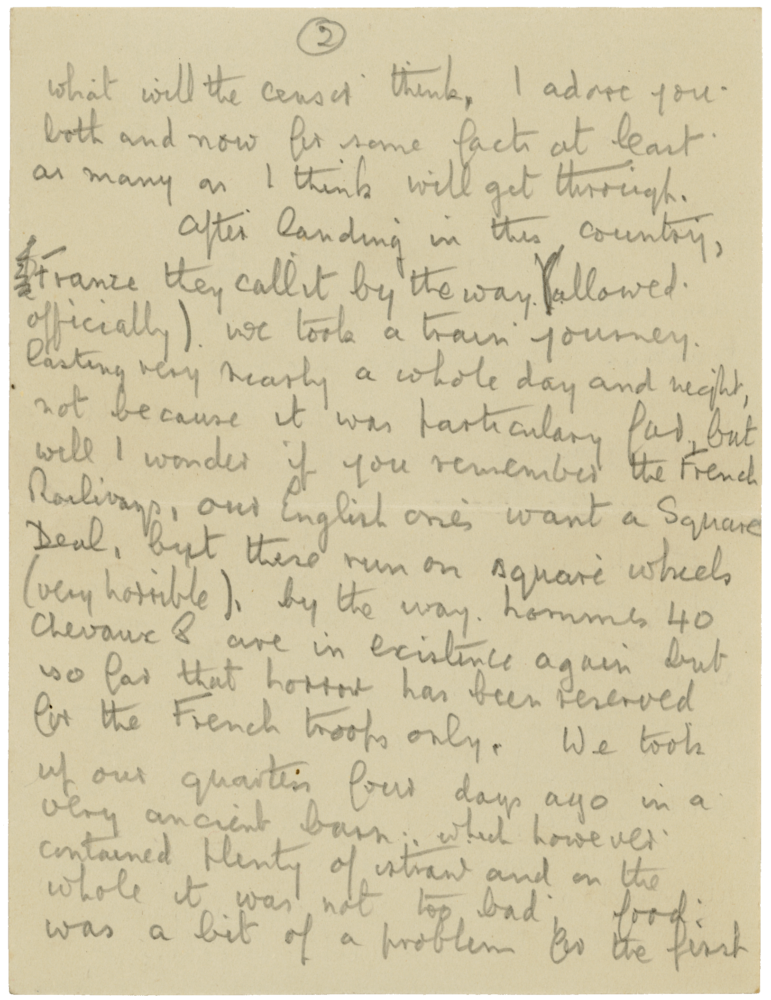 2
what will the censor think, I adore you
both and now for some facts at least
as many as I think will get through.
After landing in this country,
France they call it by the way (allowed
officially). we took a train journey.
lasting very nearly a whole day and night,
not because it was particulary far, but
well I wonder if you remember the French
Railways, our English ones want a Square
Deal, but these run on square wheels
(very horrible), by the way. hommes 40
Chevaux 8 are in existence again but
so far that horror has been reserved
for the French troops only. We took
up our quarters four days ago in a
very ancient barn.. which however
contained plenty of straw and on the
whole it was not too bad; food:
was a bit of a problem for the first